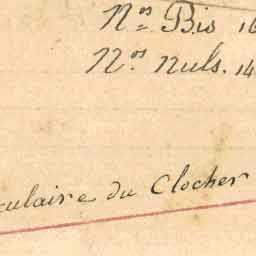 Nos Bis 16
Nos nuls. 14
culaire du Clocher